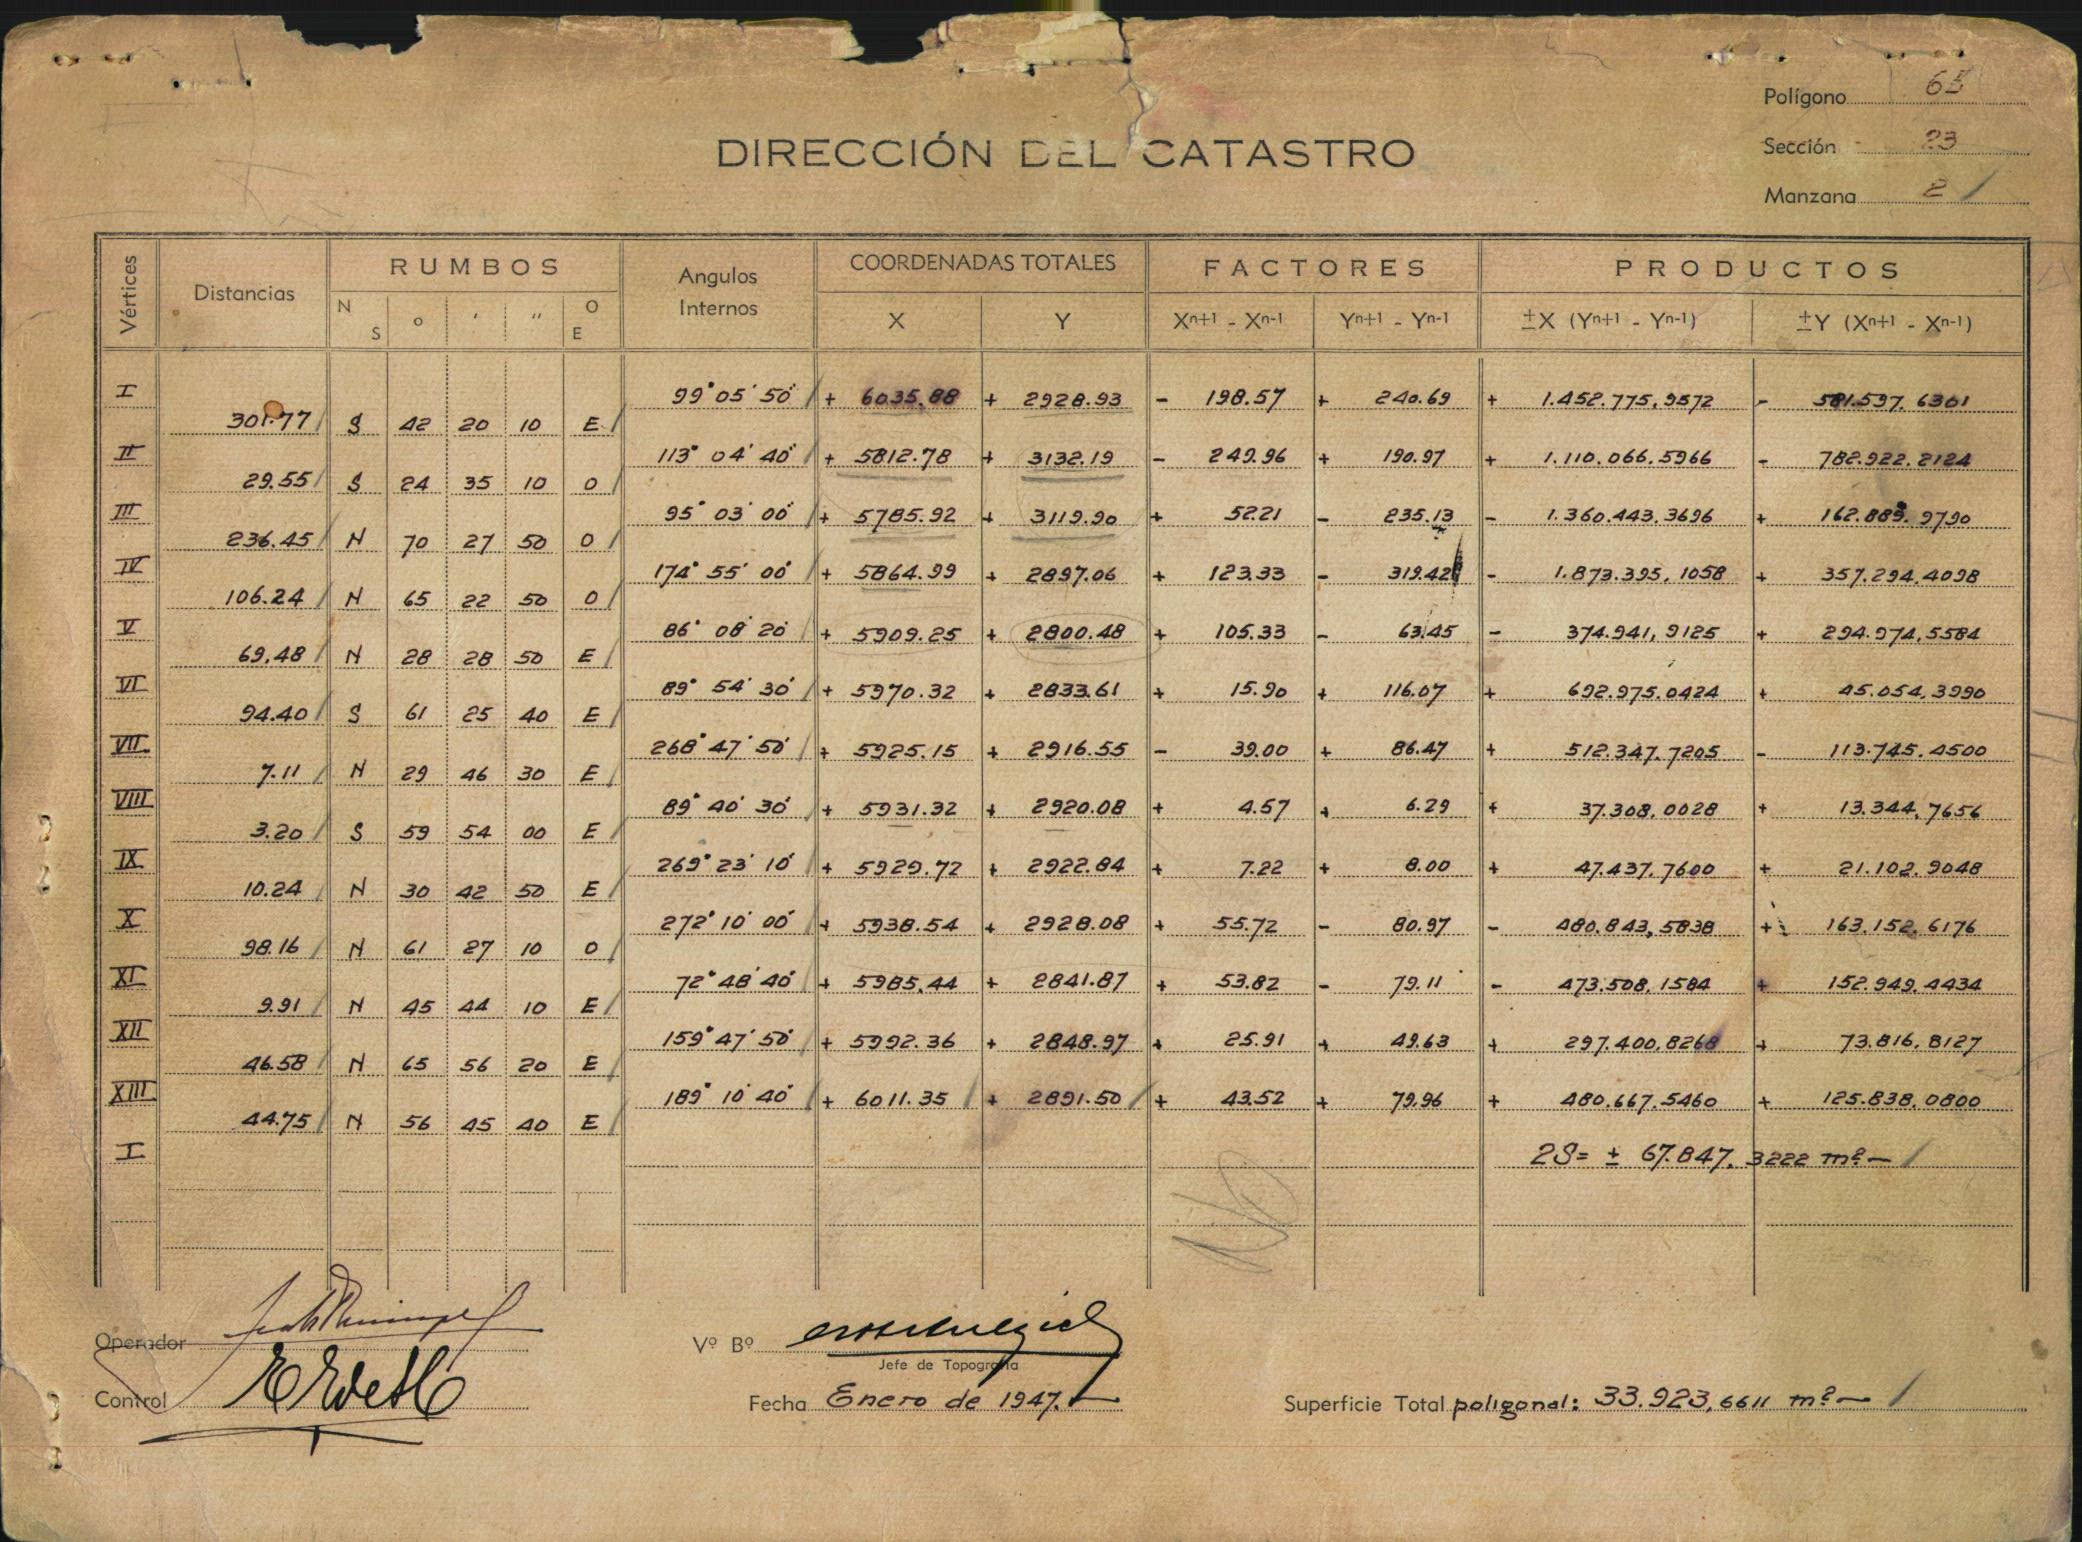 Polígono 65
Sección 23
Manzana 2
DIRECCIÓN DEL CATASTRO
Vértices Distancias RUMBOS Angulos Internos COORDENADAS TOTALES FACTORES PRODUCTOS
N S ° ' " O E X Y Xn+1 - Xn-1 Yn+1 - Yn-1 ±X (Yn+1 - Yn-1) ±Y (Xn+1 - Xn-1)
I 99° 05' 50" + 6035.88 + 2928.93 - 198.57 + 240.69 + 1.452.775,9572 - 581.597.6301
301.77 S 42 20 10 E
II 113° 04' 40" + 5812.78 + 3132.19 - 249.96 + 190.97 + 1.110.066.5966 - 782.922.2124
29.55 S 24 35 10 O
III 95° 03' 00" + 5785.92 + 3119.90 + 52.21 - 235.13 - 1.360.443.3696 + 162.889.9790
236.45 N 70 27 50 O
IV 174° 55' 00" + 5864.99 + 2897.06 + 123.33 - 319.42 - 1.873.395,1058 + 357.294.4098
106.24 N 65 22 50 O
V 86° 08' 20" + 5909.25 + 2800.48 + 105.33 - 63.45 - 374.941,9125 + 294.974,5584
69.48 N 28 28 50 E
VI 89° 54' 30" + 5970.32 + 2833.61 + 15.90 + 116.07 + 692.975.0424 + 45.054,3990
94.40 S 61 25 40 E
VII 268° 47' 50" + 5925.15 + 2916.55 - 39.00 + 86.47 + 512.347.7205 - 113.745.4500
7.11 N 29 46 30 E
VIII 89° 40' 30" + 5931.32 + 2920.08 + 4.57 + 6.29 + 37.308,0028 + 13.344,7656
3.20 S 59 54 00 E
IX 269° 23' 10" + 5929.72 + 2922.84 + 7.22 + 8.00 + 47.437,7600 + 21.102.9048
10.24 N 30 42 50 E
X 272° 10' 00" + 5938.54 + 2928.08 + 55.72 - 80.97 - 480.843,5838 + 163.152.6176
98.16 N 61 27 10 O
XI 72° 48' 40" + 5985.44 + 2841.87 + 53.82 - 79.11 - 473.508,1584 + 152.949.4434
9.91 N 45 44 10 E
XII 159° 47' 50" + 5992.36 + 2848.97 + 25.91 + 49.63 + 297.400,8268 + 73.816,8127
46.58 N 65 56 20 E
XIII 189° 10' 40" + 6011.35 + 2891.50 + 43.52 + 79.96 + 480.667.5460 + 125.838.0800
44.75 N 56 45 40 E
I 2S= ± 67.847.3222 m²—
Operador
Vº Bº
Jefe de Topografía
Control
Fecha Enero de 1947.
Superficie Total poligonal: 33.923,6611 m²—